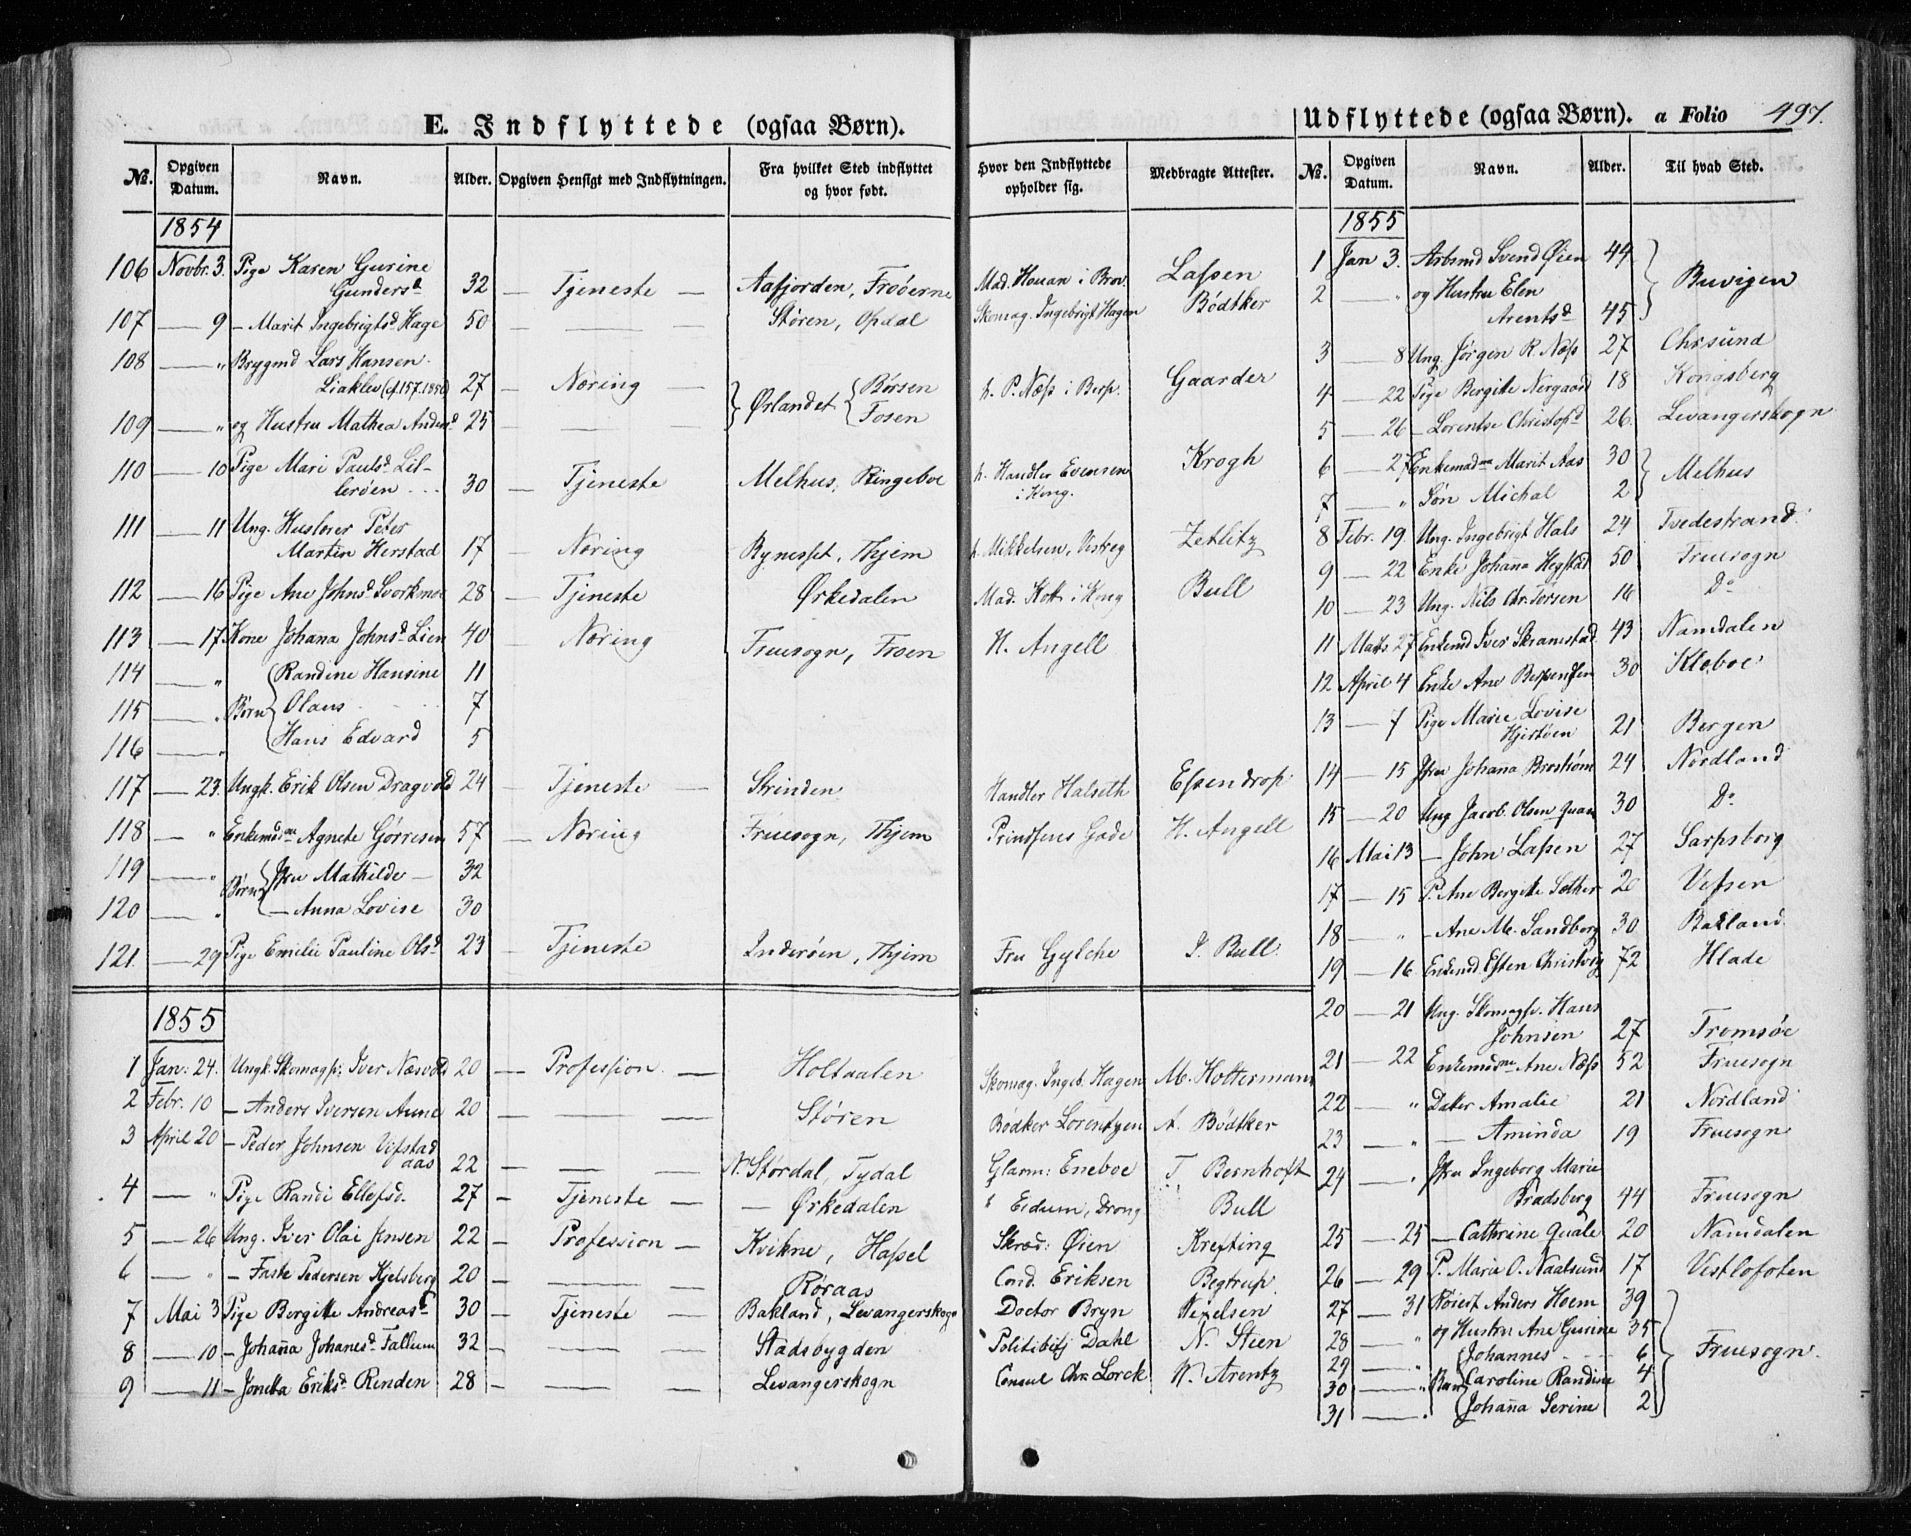 E. Indflyttede (ogsaa Børn).
№. Opgiven Datum. Navn. Alder. Opgiven Hensigt med Indflytningen. Fra hvilket Sted indflyttet og hvor født. Hvor den Indflyttede opholder sig. Medbragte Attester.
1854
106 Novbr. 3. Pige Karen Gurine
Gundersd. 32 — Tjeneste — Aafjorden, Froöerne Mad. Houan i Brov. Lassen
107 — 9 — Marit Ingebrigtsd. Hage 50 — — — Støren, Opdal Skomag. Ingebrigt Hagen Bödtker
108 — " Brygmd Lars Hansen
Liaklev 27 — Næring — Ørlandet Børsen h. P. Næss i Gaarder
109 — " og Hustru Mathea Andersd. 25 — — Fosen
110 — 10 Pige Mari Paulsd. Lil-
lerøen 30 — Tjeneste Melhus, Ringeboe h. Handler Evensen
i Kong. Krogh
111 — 11 Ung. Husl
Peter
Martin Herstad 17 — Næring Bynesset, Thjem h. Mikkelsen, Zetlitz
112 — 16 Pige Ane Johnsd. Svorkmoe 28 — Tjeneste Ørkedalen Mad. i Kong Bull
113 — 17. Kone Johana Johnsd. Lien 40 — Næring Fruesogn, Froen H. Angell
114 — " Randine Hansine 11
115 — " Børn Olaus 7
116 — " Hans Edvard 5
117 — 23. Ungk. Erik Olsen Dragvold 24 — Tjeneste — Strinden Handler Halseth Essendrop
118 — " Enkemadme Agnete Gørresen 57 — Næring Fruesogn, Thjem Prindsens Gade H. Angell
119 — " Børn Jfru Mathilde — 32
120 — " — Anna Lovise 30
121 — 29 Pige Emilie Pauline Olsd. 23 — Tjeneste Inderöen, Thjem Fru Gylche J. Bull
1855
1 Jan: 24. Ungk. Skomagsv. Iver Næsvold 20 — Profession — Holtaalen Skomag. Ingeb. Hagen M. Holtermann
2 Febr. 10 — Anders Iversen Aune 20 — — Støren Bødker Lorentzen A. Bödtker
3 April 20 — Peder Johnsen Vifstad
aas 22 — — — N. Størdal, Tydal Glarm: Eneboe T. Bernhoft
4 — " Pige Randi Ellefsd. 27 — Tjeneste — Ørkedalen " Eidum, Drong Bull
5 — 26 Ung. Iver Olai Jensen 22 — Profession — Kvikne, Hassel Skræd: Øien Krefting
6 — " — Faste Pedersen Kjelsberg 20 — — — Røraas Cond. Eriksen Begtrup
7 Mai 3 Pige Bergitte Andreasd. 30 — Tjeneste — Bakland, Levangerskogn Doctor Bryn Nexelsen
8 — 10 — Johanna Johanesd. Fallum 32 — — — Stadsbygden Politibetj Dahl N. Stien
9 — 11 — Jonetta Eriksd. Renden 28 — — — Levangerskogn Consul Chr. Lorck W. Arentz
Udflyttede (ogsaa Børn). a Folio 497.
№. Opgiven Datum. Navn. Alder. Til hvad Sted.
1855
1 Jan 3. Arbsmd Svend Øien 44 Buvigen
2 " og Hustru Elen
Arentsd. 45
3 — 8 Ung. Jørgen R. Næss 27 Chrsund
4 — 22 Pige Bergitte Norgaard 18 Kongsberg
5 — 26 — Lorentse Christofd. 26 Levangerskogn
6 — 27 Enkemadme Marit Aas 30 Melhus
7 " Søn Michal 2
8 Febr. 19. Ung. Ingebrigt Hals 24 Tvedestrand
9 — 22 Enke Johana Hegstad 50 Fruesogn
10 — 23 Ung. Nils Chr. Torsen 16 Do
11 Marts 27 Enkemd Iver Skranestad 43 Namdalen
12 April 4 Enke Ane Bersvendsen 30 Kleboe
13 — 7 Pige Marie Lovise
Hjortöen 21 Bergen
14 — 15 Jfru Johana Broström 24 Nordland
15 — 20 Ung Jacob Olsen Quam 30 Do
16 Mai 13 — John Lassen 27 Sarpsborg
17 — 15 P. Ane Bergitte Sæther 20 Vefsen
18 — " — Ane M. Sandberg 30 Bakland
19 — 16 Enkemd. Esten Christvig 72 Hlade
20 — 21 Ung. Skomagsv. Hans
Johnsen 27 Tromsöe
21 — 22 Enkemadme Ane Næss 52 Fruesogn
22 — " Datter Amalie 21 Nordland
23 — " — Aminda 19 Fruesogn
24 — " Jfru Ingeborg Marie
Bradsberg 44 Fruesogn
25 — 25 — Cathrine Quale 20 Namdalen
26 — 29 P. Marie O. Naalsund 17 Vestlofoten
27 — 31 Anders Hoem 39 Fruesogn.
28 — " og Hustru Ane Gurine 35
29 — " Johannes 6
30 — " Børn Caroline Randine 4
31 — " Johanna Serine 2